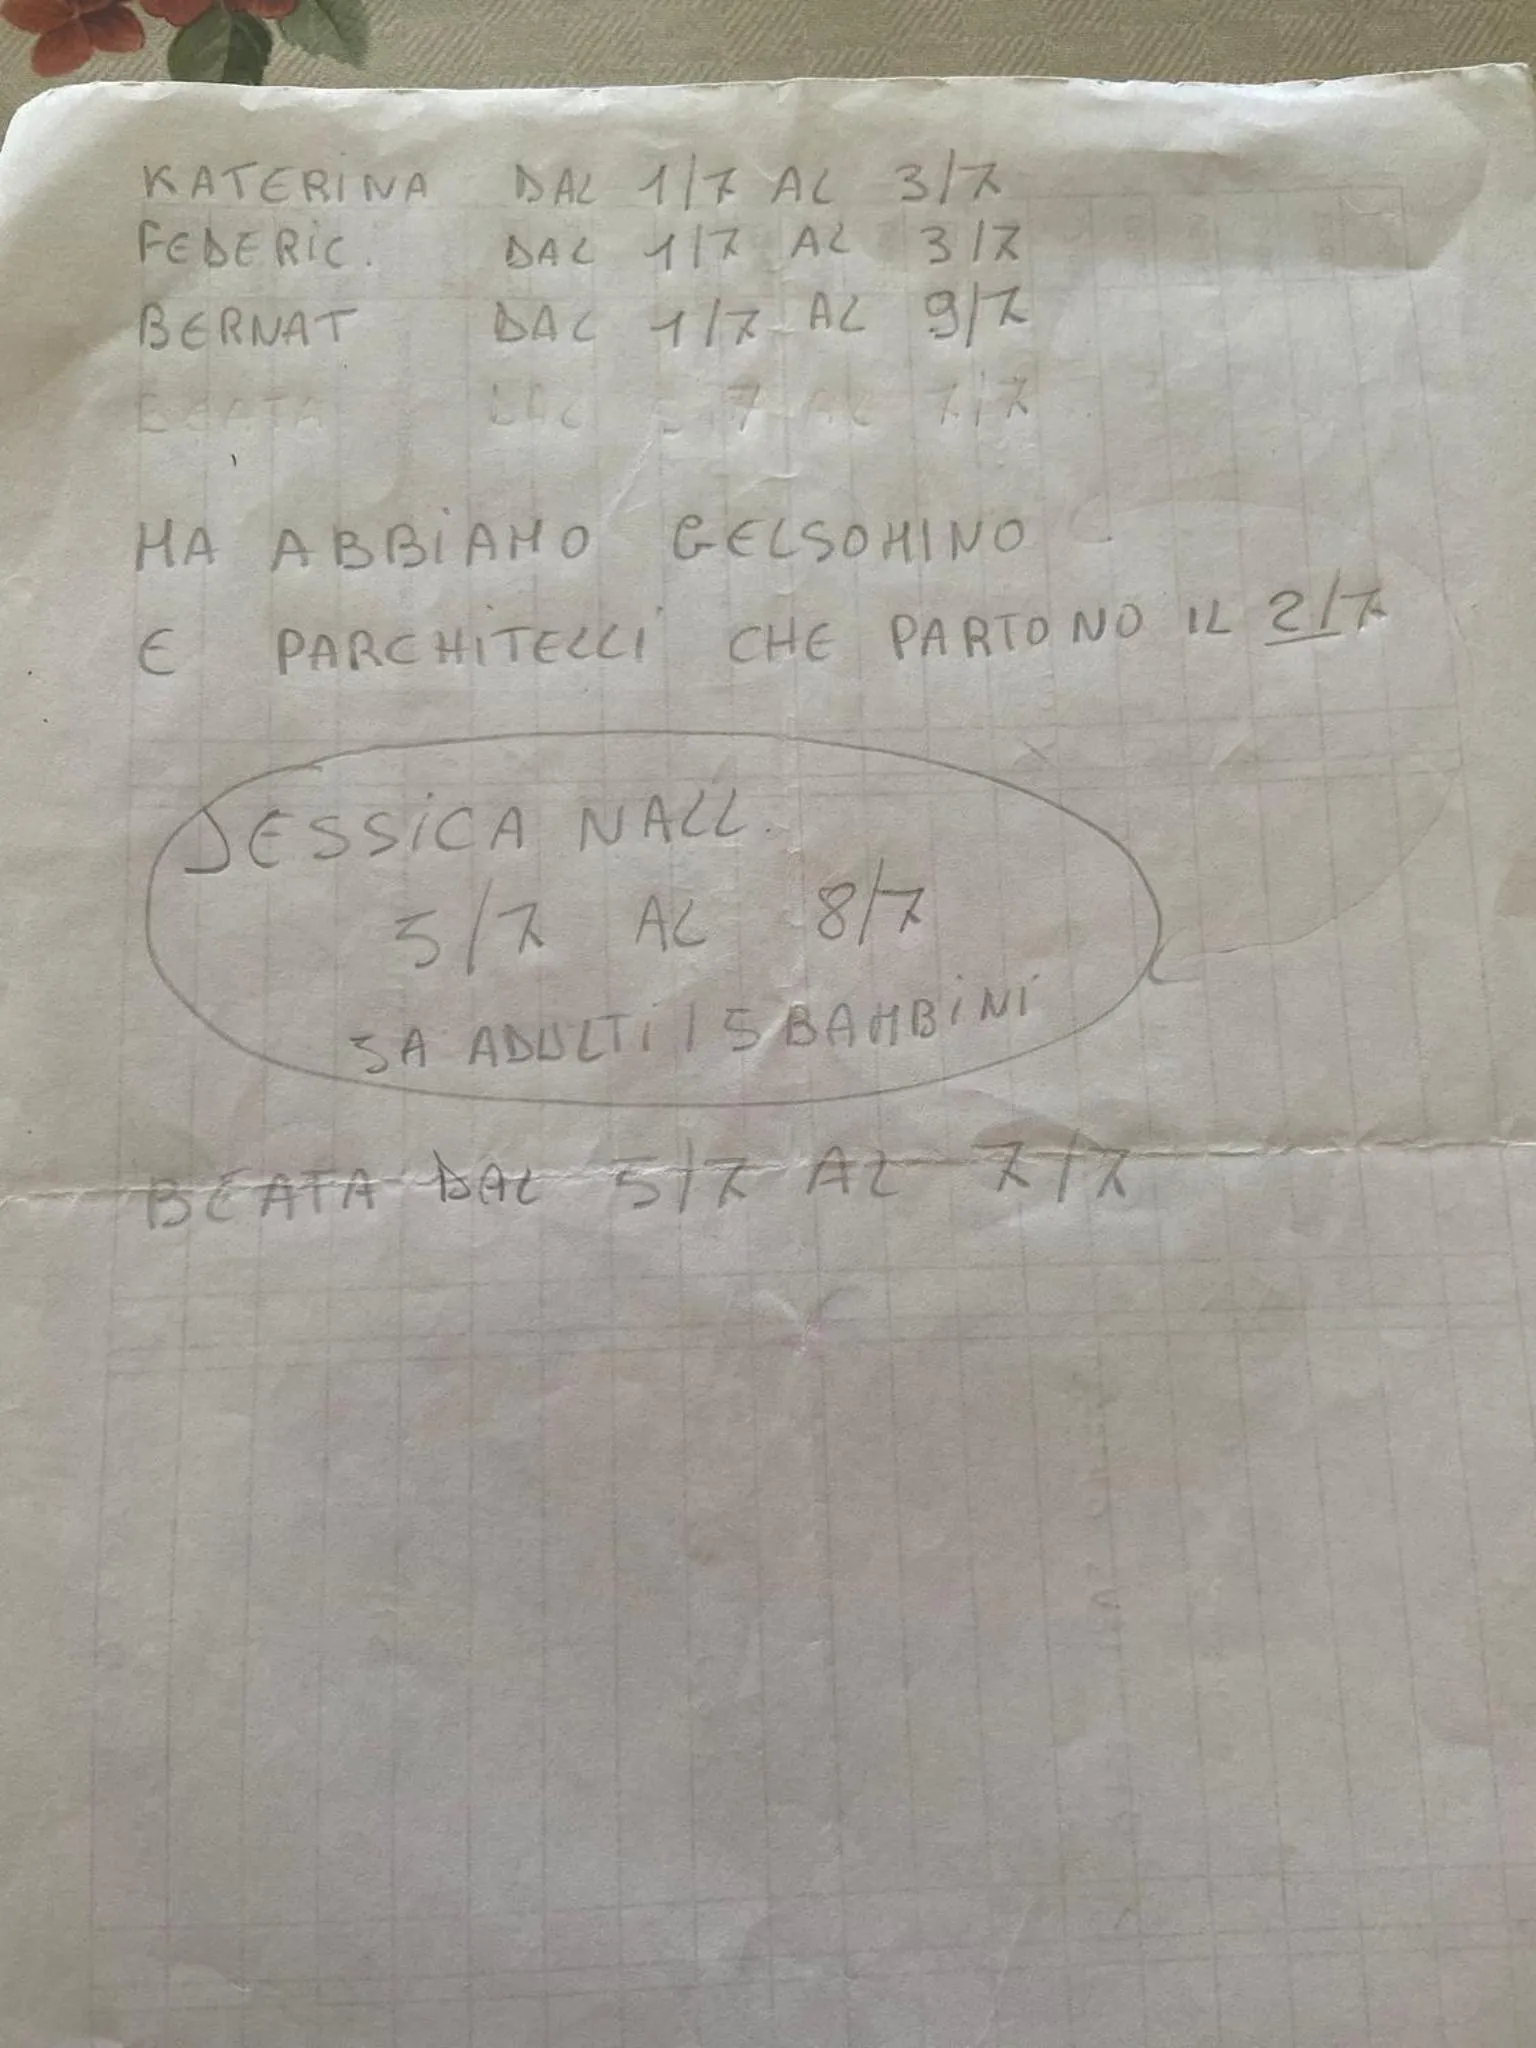 KATERINA DAL 1/7 AL 3/7
FEDERIC. DAL 1/7 AL 3/7
BERNAT DAL 1/7 AL 9/7
BEATA DAL 7 AL 7/7
MA ABBIAMO GELSOMINO
E PARCHITELLI CHE PARTONO IL 2/7
JESSICA NALL.
5/7 AL 8/7
5A ADULTI / 5 BAMBINI
BEATA DAL 5/7 AL 7/7